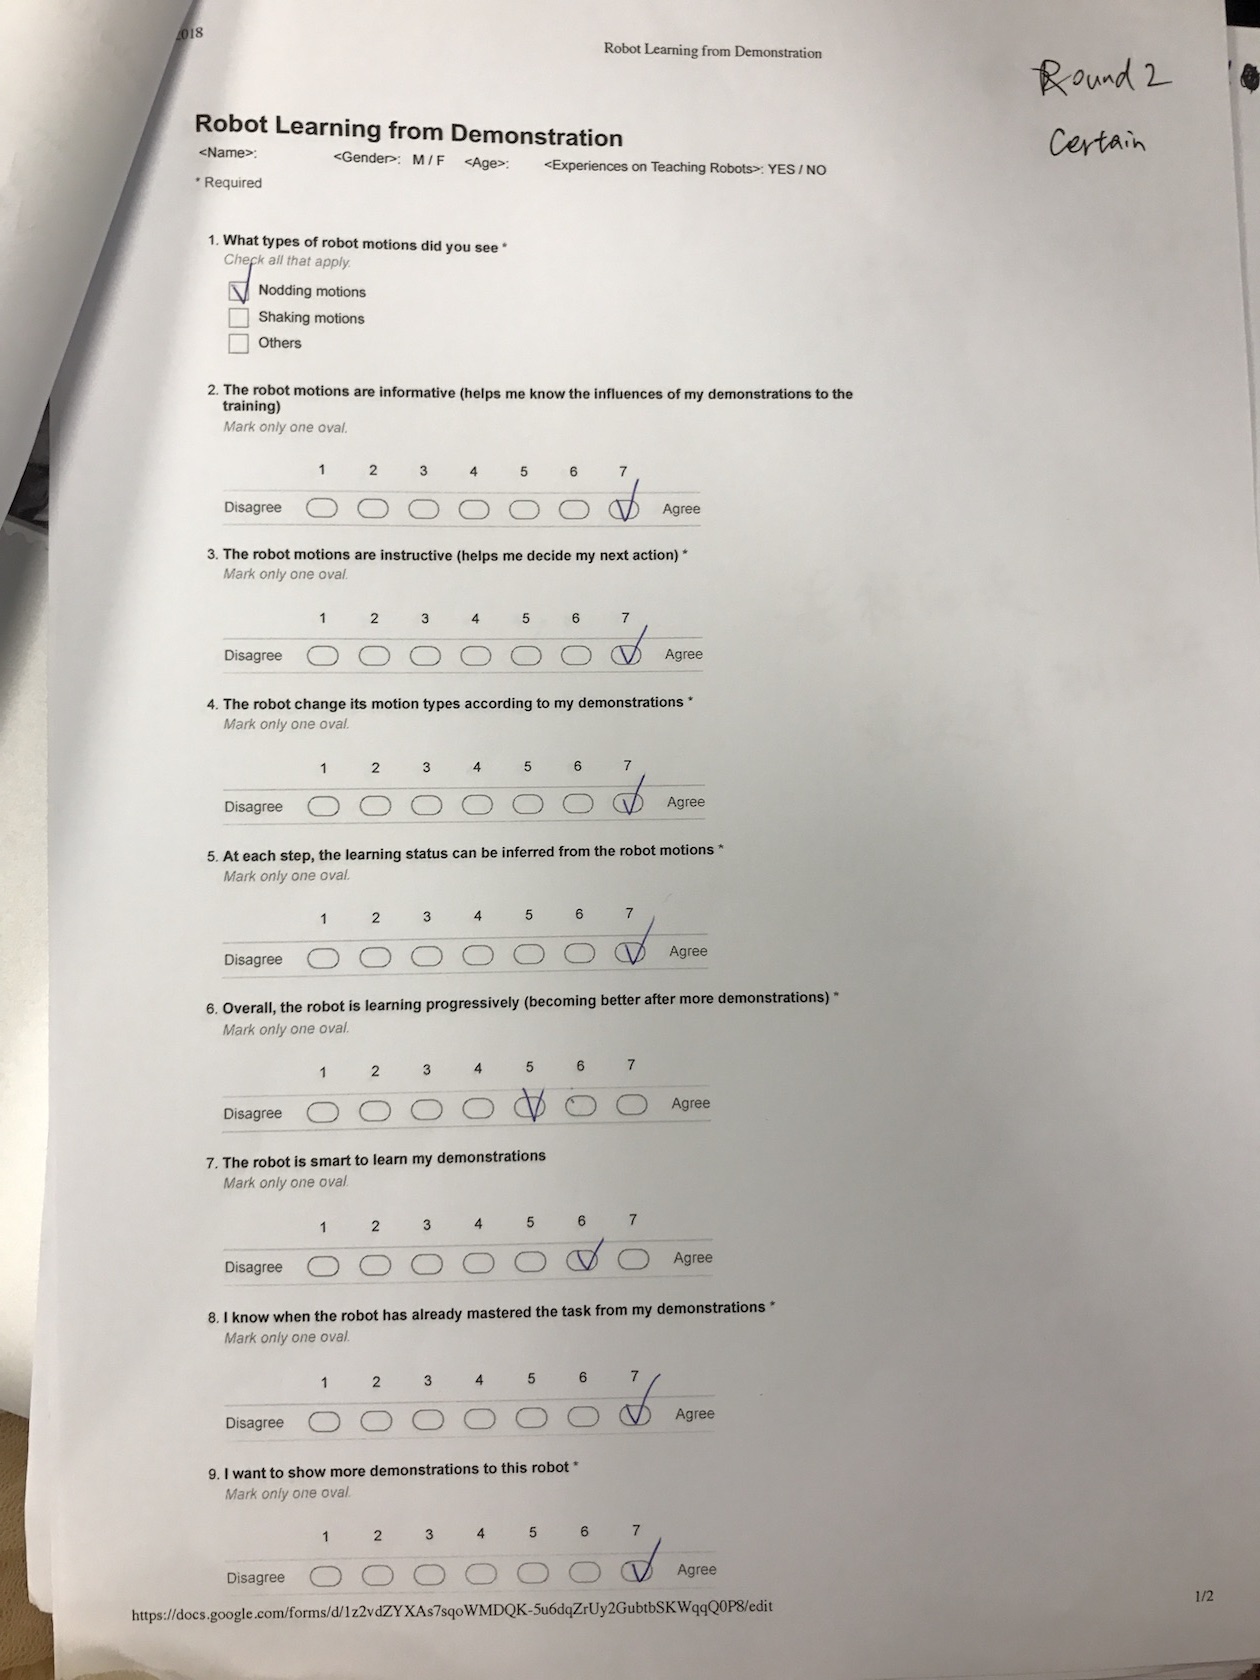 2018
Robot Learning from Demonstration
Round 2
Certain
Robot Learning from Demonstration
<Name>: <Gender>: M / F <Age>: <Experiences on Teaching Robots>: YES / NO
* Required
1. What types of robot motions did you see *
Check all that apply.
Nodding motions
Shaking motions
Others
2. The robot motions are informative (helps me know the influences of my demonstrations to the
training)
Mark only one oval.
1 2 3 4 5 6 7
Disagree Agree
3. The robot motions are instructive (helps me decide my next action) *
Mark only one oval.
1 2 3 4 5 6 7
Disagree Agree
4. The robot change its motion types according to my demonstrations *
Mark only one oval.
1 2 3 4 5 6 7
Disagree Agree
5. At each step, the learning status can be inferred from the robot motions *
Mark only one oval.
1 2 3 4 5 6 7
Disagree Agree
6. Overall, the robot is learning progressively (becoming better after more demonstrations) *
Mark only one oval.
1 2 3 4 5 6 7
Disagree Agree
7. The robot is smart to learn my demonstrations
Mark only one oval.
1 2 3 4 5 6 7
Disagree Agree
8. I know when the robot has already mastered the task from my demonstrations *
Mark only one oval.
1 2 3 4 5 6 7
Disagree Agree
9. I want to show more demonstrations to this robot *
Mark only one oval.
1 2 3 4 5 6 7
Disagree Agree
https://docs.google.com/forms/d/1z2vdZYXAs7sqoWMDQK-5u6dqZrUy2GubtbSKWqqQ0P8/edit
1/2